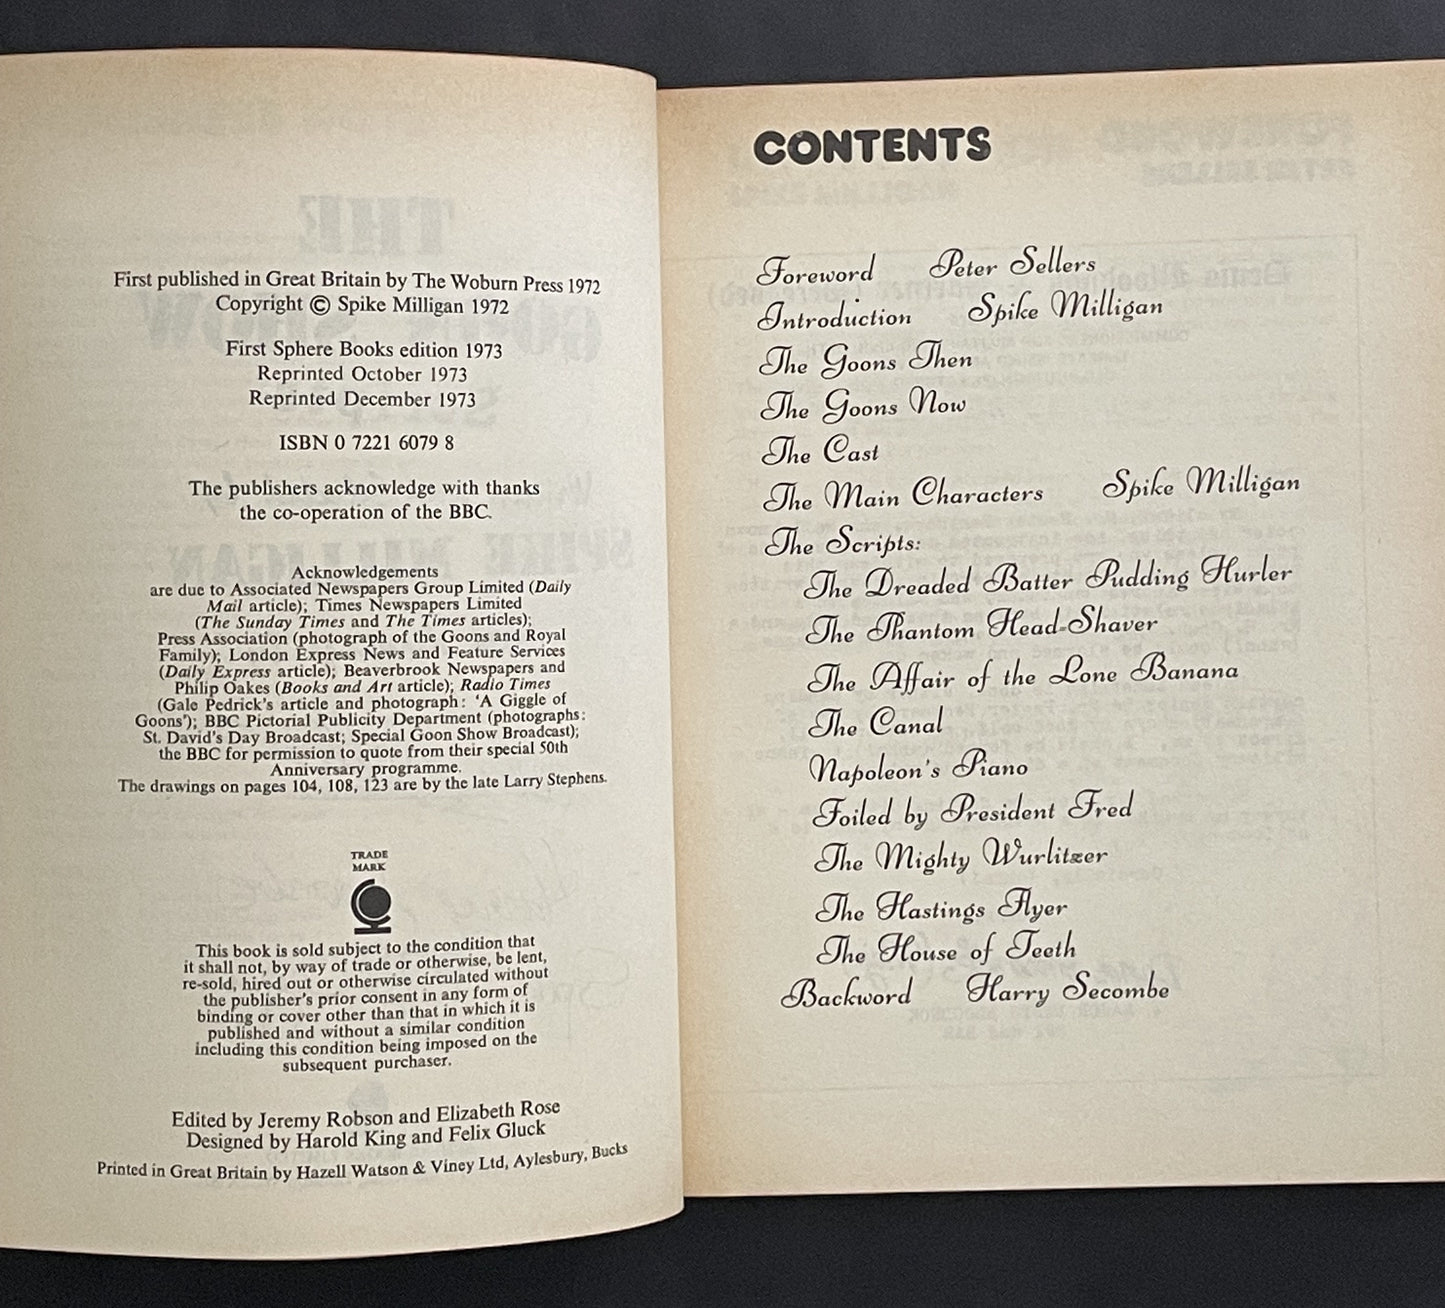 First published in Great Britain by The Woburn Press 1972
Copyright © Spike Milligan 1972
First Sphere Books edition 1973
Reprinted October 1973
Reprinted December 1973
ISBN 0 7221 6079 8
The publishers acknowledge with thanks
the co-operation of the BBC.
Acknowledgements
are due to Associated Newspapers Group Limited (Daily
Mail article); Times Newspapers Limited
(The Sunday Times and The Times articles);
Press Association (photograph of the Goons and Royal
Family); London Express News and Feature Services
(Daily Express article); Beaverbrook Newspapers and
Philip Oakes (Books and Art article); Radio Times
(Gale Pedrick's article and photograph: 'A Giggle of
Goons'); BBC Pictorial Publicity Department (photographs:
St. David's Day Broadcast; Special Goon Show Broadcast);
the BBC for permission to quote from their special 50th
Anniversary programme.
The drawings on pages 104, 108, 123 are by the late Larry Stephens.
TRADE
MARK
This book is sold subject to the condition that
it shall not, by way of trade or otherwise, be lent,
re-sold, hired out or otherwise circulated without
the publisher's prior consent in any form of
binding or cover other than that in which it is
published and without a similar condition
including this condition being imposed on the
subsequent purchaser.
Edited by Jeremy Robson and Elizabeth Rose
Designed by Harold King and Felix Gluck
Printed in Great Britain by Hazell Watson & Viney Ltd, Aylesbury, Bucks
CONTENTS
Foreword Peter Sellers
Introduction Spike Milligan
The Goons Then
The Goons Now
The Cast
The Main Characters Spike Milligan
The Scripts:
The Dreaded Batter Pudding Hurler
The Phantom Head-Shaver
The Affair of the Lone Banana
The Canal
Napoleon's Piano
Foiled by President Fred
The Mighty Wurlitzer
The Hastings Flyer
The House of Teeth
Backword Harry Secombe